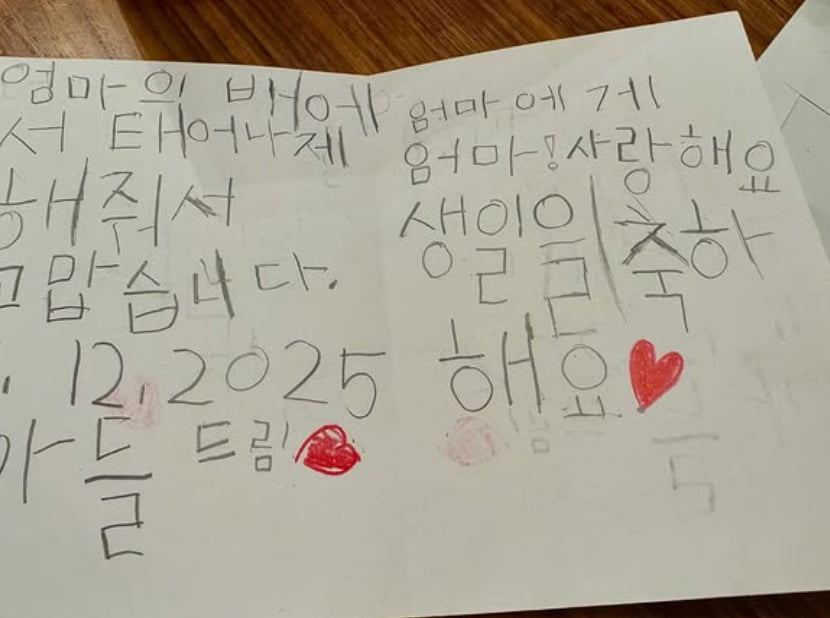 엄마에게
엄마! 사랑해요
생일을 축하
해요
엄마의 배에
서 태어나제
해줘서
고맙습니다.
. 12. 2025
아들 드림